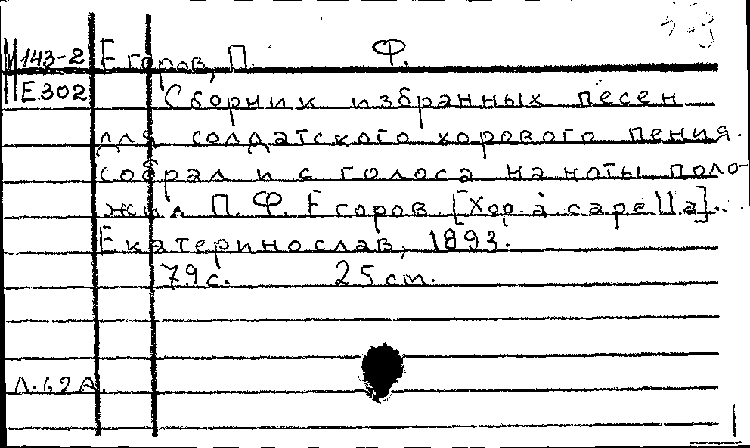 М 143-2 Егоров, П. Ф.
Е302 Сборник избранных песен
для солдатского хорового пения.
Собрал и с голоса на ноты поло-
жил П. Ф. Егоров. [Хор a capella].
Екатеринослав, 1893.
79 с. 25 cm.